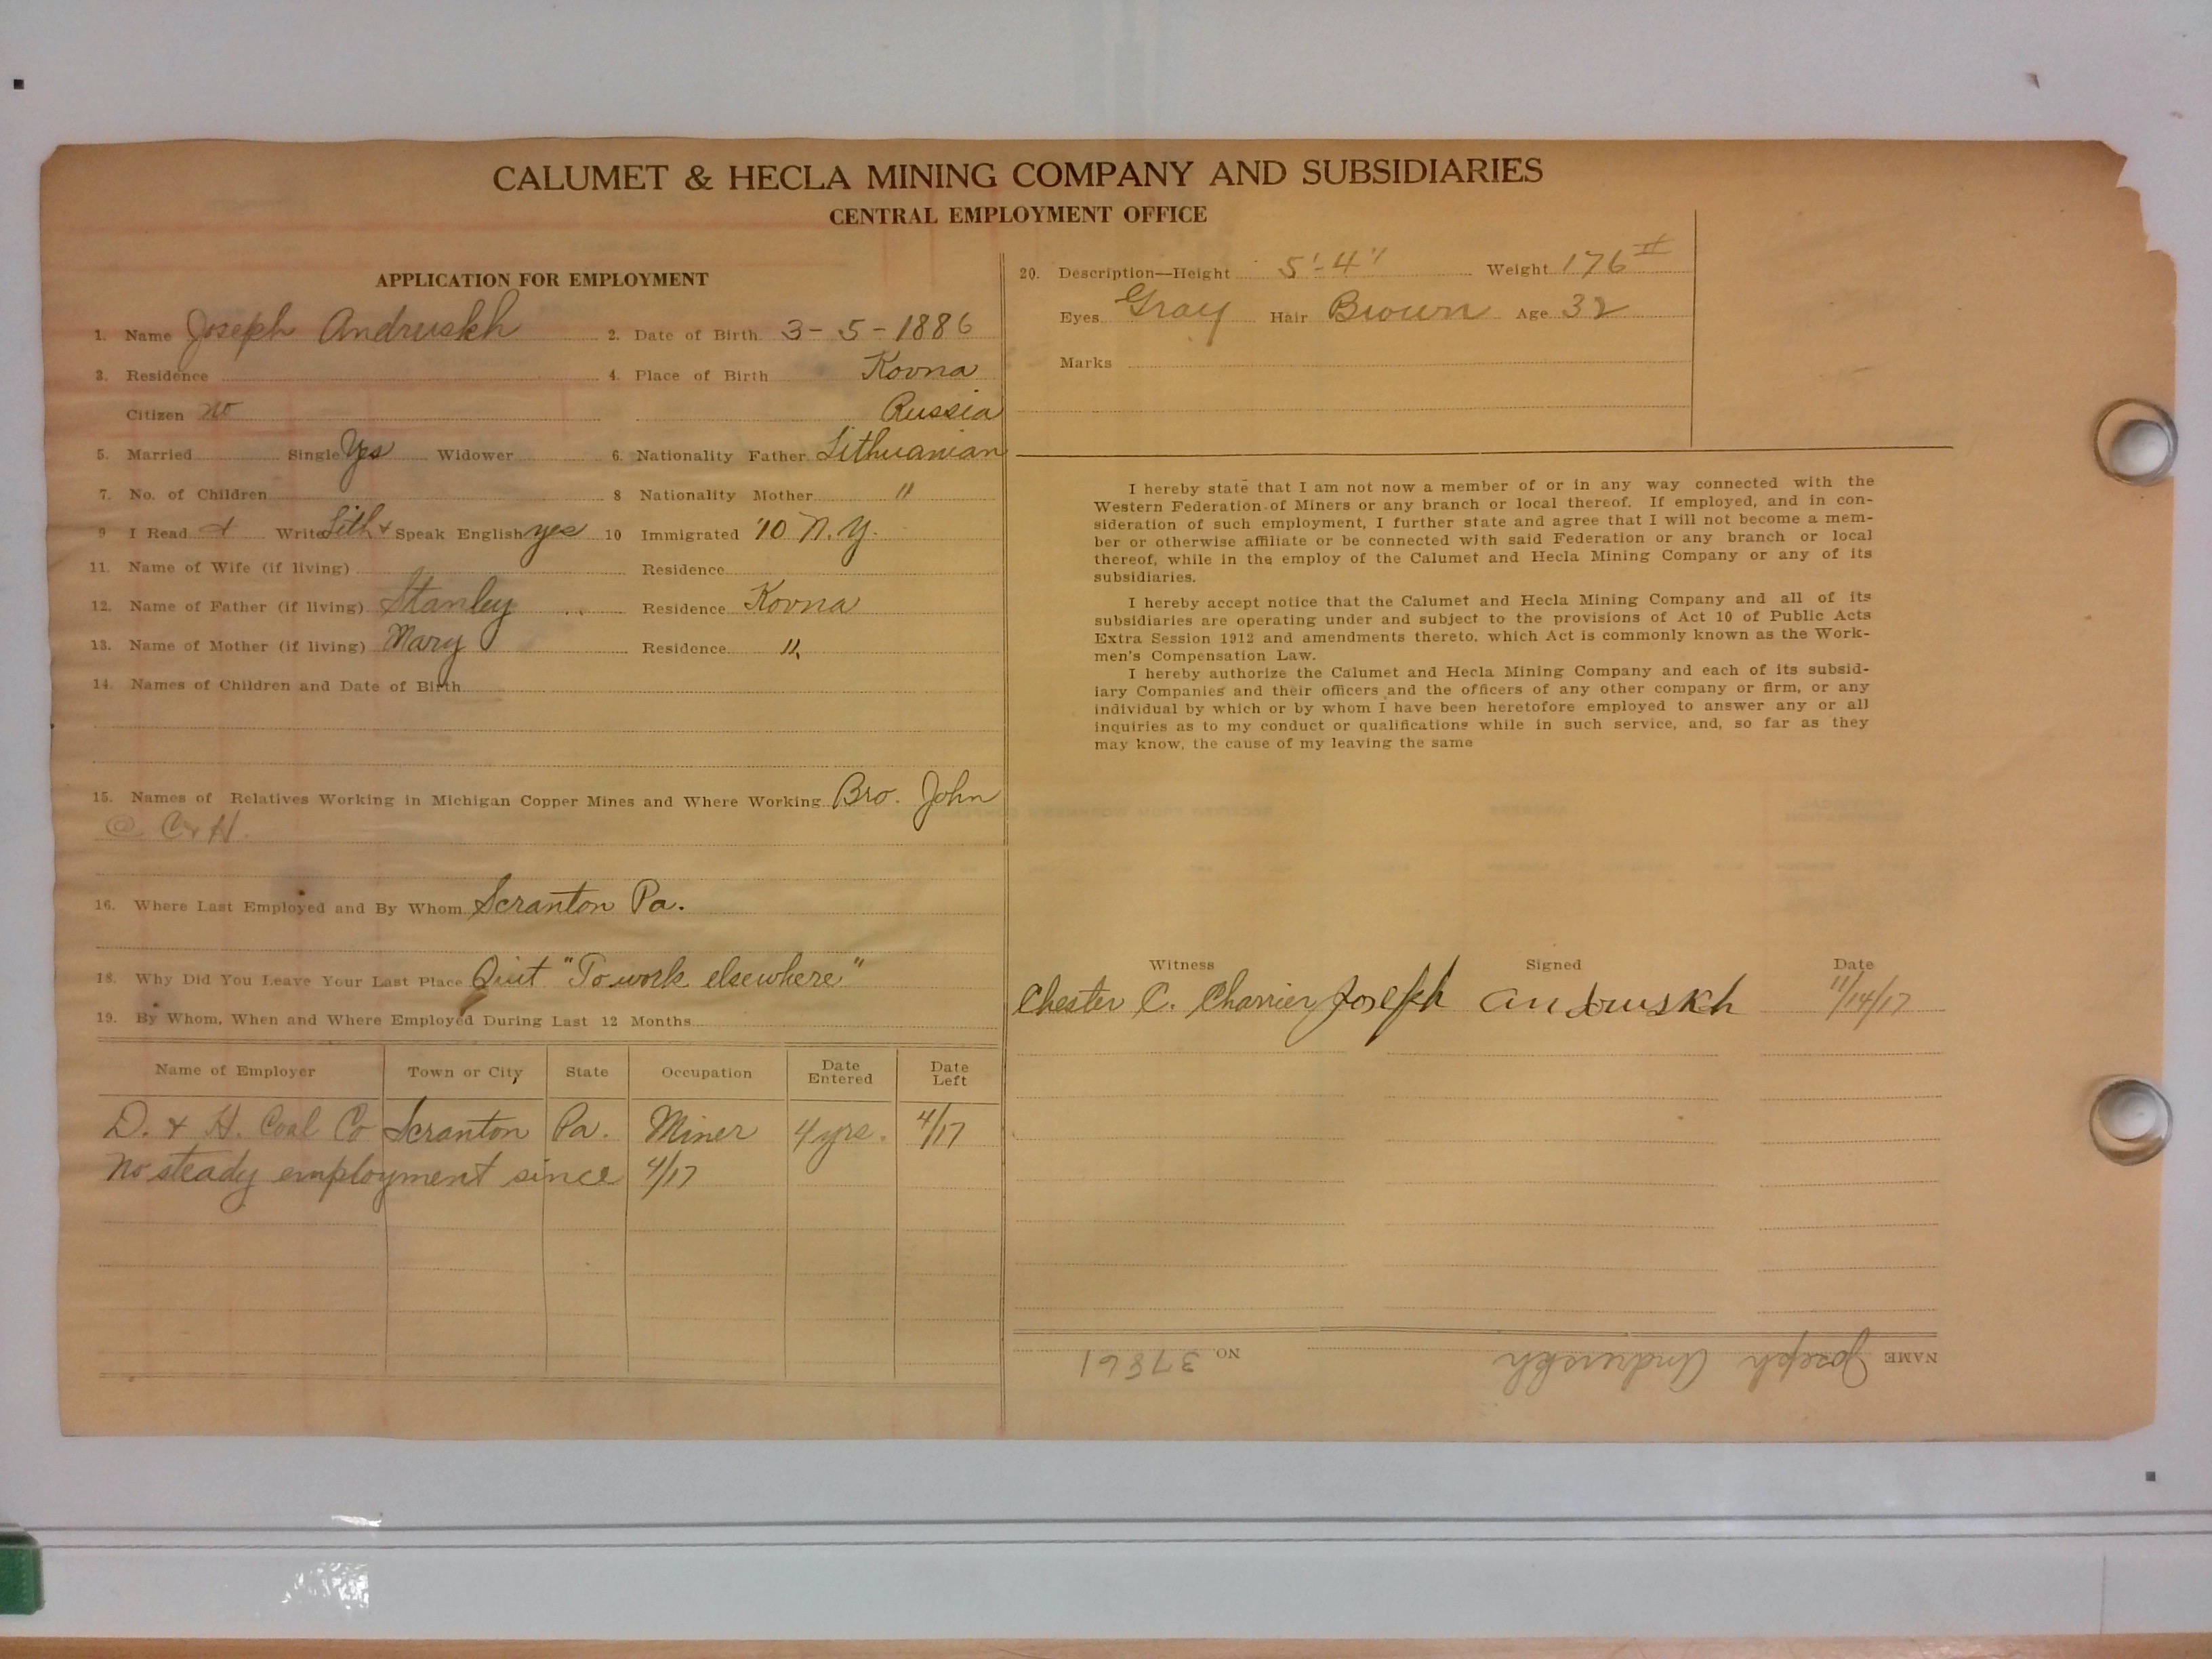 CALUMET & HECLA MINING COMPANY AND SUBSIDIARIES
CENTRAL EMPLOYMENT OFFICE
APPLICATION FOR EMPLOYMENT
1. Name Joseph Andruskh 2. Date of Birth 3-5-1886
3. Residence 4. Place of Birth Kovna
Citizen no Russia
5. Married Single Yes Widower 6. Nationality Father Lithuanian
7. No. of Children 8 Nationality Mother "
9 I Read & Write Lith & Speak English yes 10 Immigrated '10 N.Y.
11. Name of Wife (if living) Residence
12. Name of Father (if living) Stanley Residence Kovna
13. Name of Mother (if living) Mary Residence "
14. Names of Children and Date of Birth
15. Names of Relatives Working in Michigan Copper Mines and Where Working Bro. John
@ C & H.
16. Where Last Employed and By Whom Scranton Pa.
18. Why Did You Leave Your Last Place Quit "To work elsewhere"
19. By Whom, When and Where Employed During Last 12 Months
Name of Employer Town or City State Occupation Date Entered Date Left
D. & H. Coal Co Scranton Pa. Miner 4 yrs. 4/17
No steady employment since 4/17
20. Description—Height 5'-4" Weight 176 #
Eyes Gray Hair Brown Age 32
Marks
I hereby state that I am not now a member of or in any way connected with the
Western Federation of Miners or any branch or local thereof. If employed, and in con-
sideration of such employment, I further state and agree that I will not become a mem-
ber or otherwise affiliate or be connected with said Federation or any branch or local
thereof, while in the employ of the Calumet and Hecla Mining Company or any of its
subsidiaries.
I hereby accept notice that the Calumet and Hecla Mining Company and all of its
subsidiaries are operating under and subject to the provisions of Act 10 of Public Acts
Extra Session 1912 and amendments thereto, which Act is commonly known as the Work-
men's Compensation Law.
I hereby authorize the Calumet and Hecla Mining Company and each of its subsid-
iary Companies and their officers and the officers of any other company or firm, or any
individual by which or by whom I have been heretofore employed to answer any or all
inquiries as to my conduct or qualifications while in such service, and, so far as they
may know, the cause of my leaving the same
Witness Signed Date
Chester C. Charrier Joseph Andruskh 11/14/17
NAME Joseph Andruskh NO 37861